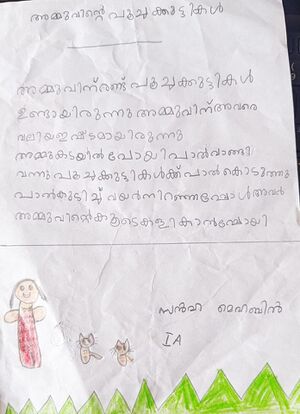 അമ്മുവിന്റെ പൂച്ചക്കുട്ടികൾ
അമ്മുവിന് രണ്ട് പൂച്ചക്കുട്ടികൾ
ഉണ്ടായിരുന്നു അമ്മുവിന് അവരെ
വലിയ ഇഷ്ടമായിരുന്നു
അമ്മു കടയിൽ പോയി പാൽ വാങ്ങി
വന്നു പൂച്ചക്കുട്ടികൾക്ക് പാൽ കൊടുത്തു
പാൽ കുടിച്ച് വയർ നിറഞ്ഞപ്പോൾ അവർ
അമ്മുവിന്റെ കൂടെ കളിക്കാൻ പോയി
സൻഹ മെഹബിൻ
I A